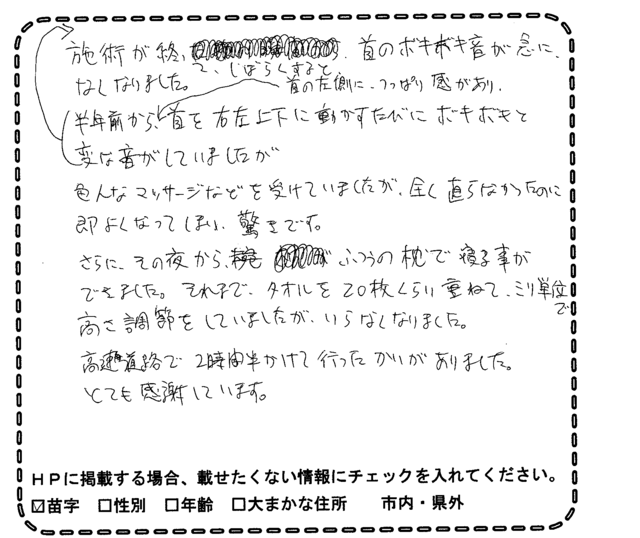 施術が終
って、しばらくすると、首のボキボキ音が急に、
なくなりました。
首の左側に、つっぱり感があり、
半年前から、首を右左上下に動かすたびにボキボキと
変な音がしていましたが
色んなマッサージなどを受けていましたが、全く直らなかったのに
即よくなってしまい、驚きです。
さらに、その夜から、ふつうの枕で寝る事が
できました。それまで、タオルを20枚くらい重ねて、ミリ単位で
高さ調節をしていましたが、いらなくなりました。
高速道路で2時間半かけて行ったかいがありました。
とても感謝しています。
HPに掲載する場合、載せたくない情報にチェックを入れてください。
☑苗字 □性別 □年齢 □大まかな住所 市内・県外